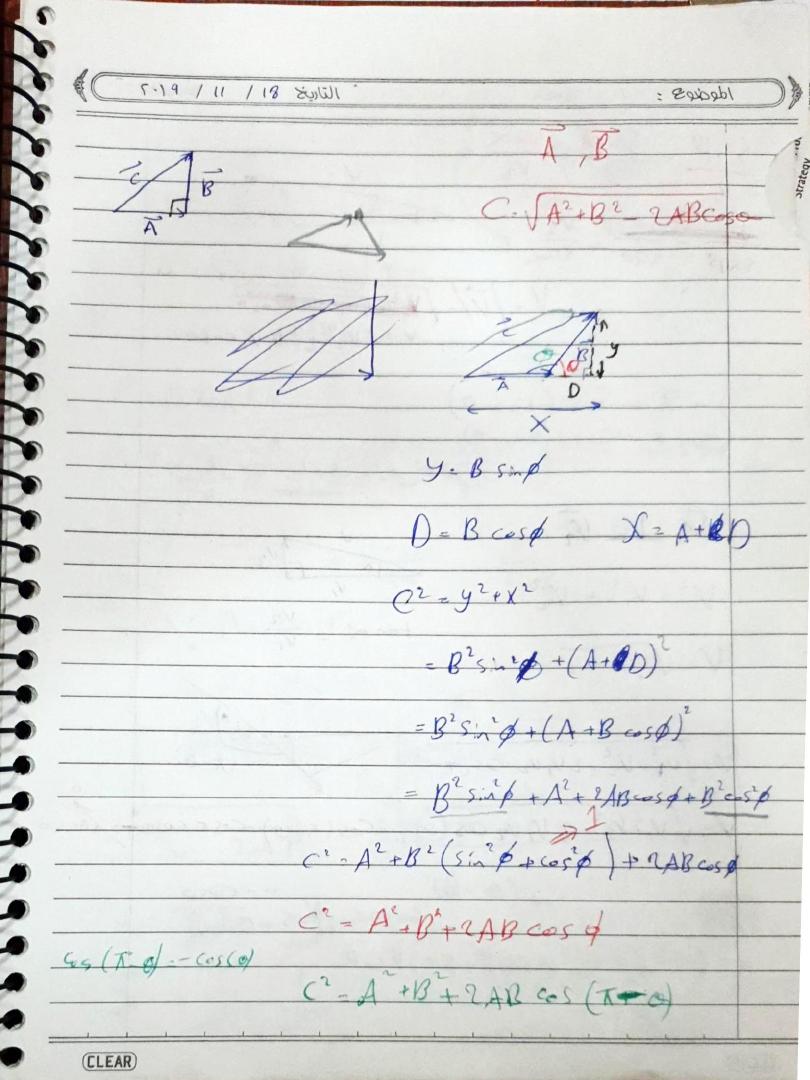 الموضوع : التاريخ ١٨ / ١١ / ٢٠١٩
strategy
A⃗ , B⃗
C = √A² + B² - 2ABcosθ
C⃗ B⃗
A⃗
C⃗ θ B⃗ ϕ y
A⃗ D
X
y = B sinϕ
D = B cosϕ X = A + D
C² = y² + x²
= B² sin²ϕ + (A + D)²
= B² sin²ϕ + (A + B cosϕ)²
= B² sin²ϕ + A² + 2ABcosϕ + B² cos²ϕ
⇒ 1
C² = A² + B² (sin²ϕ + cos²ϕ) + 2ABcosϕ
C² = A² + B² + 2AB cos ϕ
cos (π - θ) = - cos(θ)
C² = A² + B² + 2AB cos (π - θ)
CLEAR